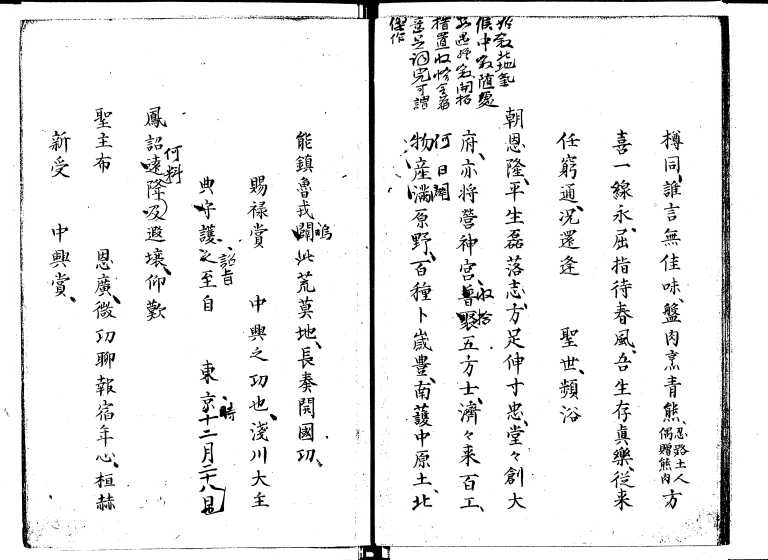 樽同、誰言無佳味、盤肉烹青熊、忍路土人偶贈熊肉方
喜一線永、屈指待春風、吾生存真樂、從来
任窮通、況還逢 聖世、頻浴
朝恩隆、平生磊落志、方足伸寸忠、堂々創大
府、亦将営神宮、曽聚五方士、済々来百工、
収拾
何日闢
物産満原野、百種卜歳豊、南護中原土、北
傑作
能鎮魯戎闢此荒莫地、長奏開國功、
賜禄賞 中興之功也、淺川大主
典守護之至自 東京十二月二十八日
詔旨
時
鳳詔遠降及遐壌、仰歎
何料
聖主布 恩廣、微功聊報宿年心、桓赫
新受 中興賞、